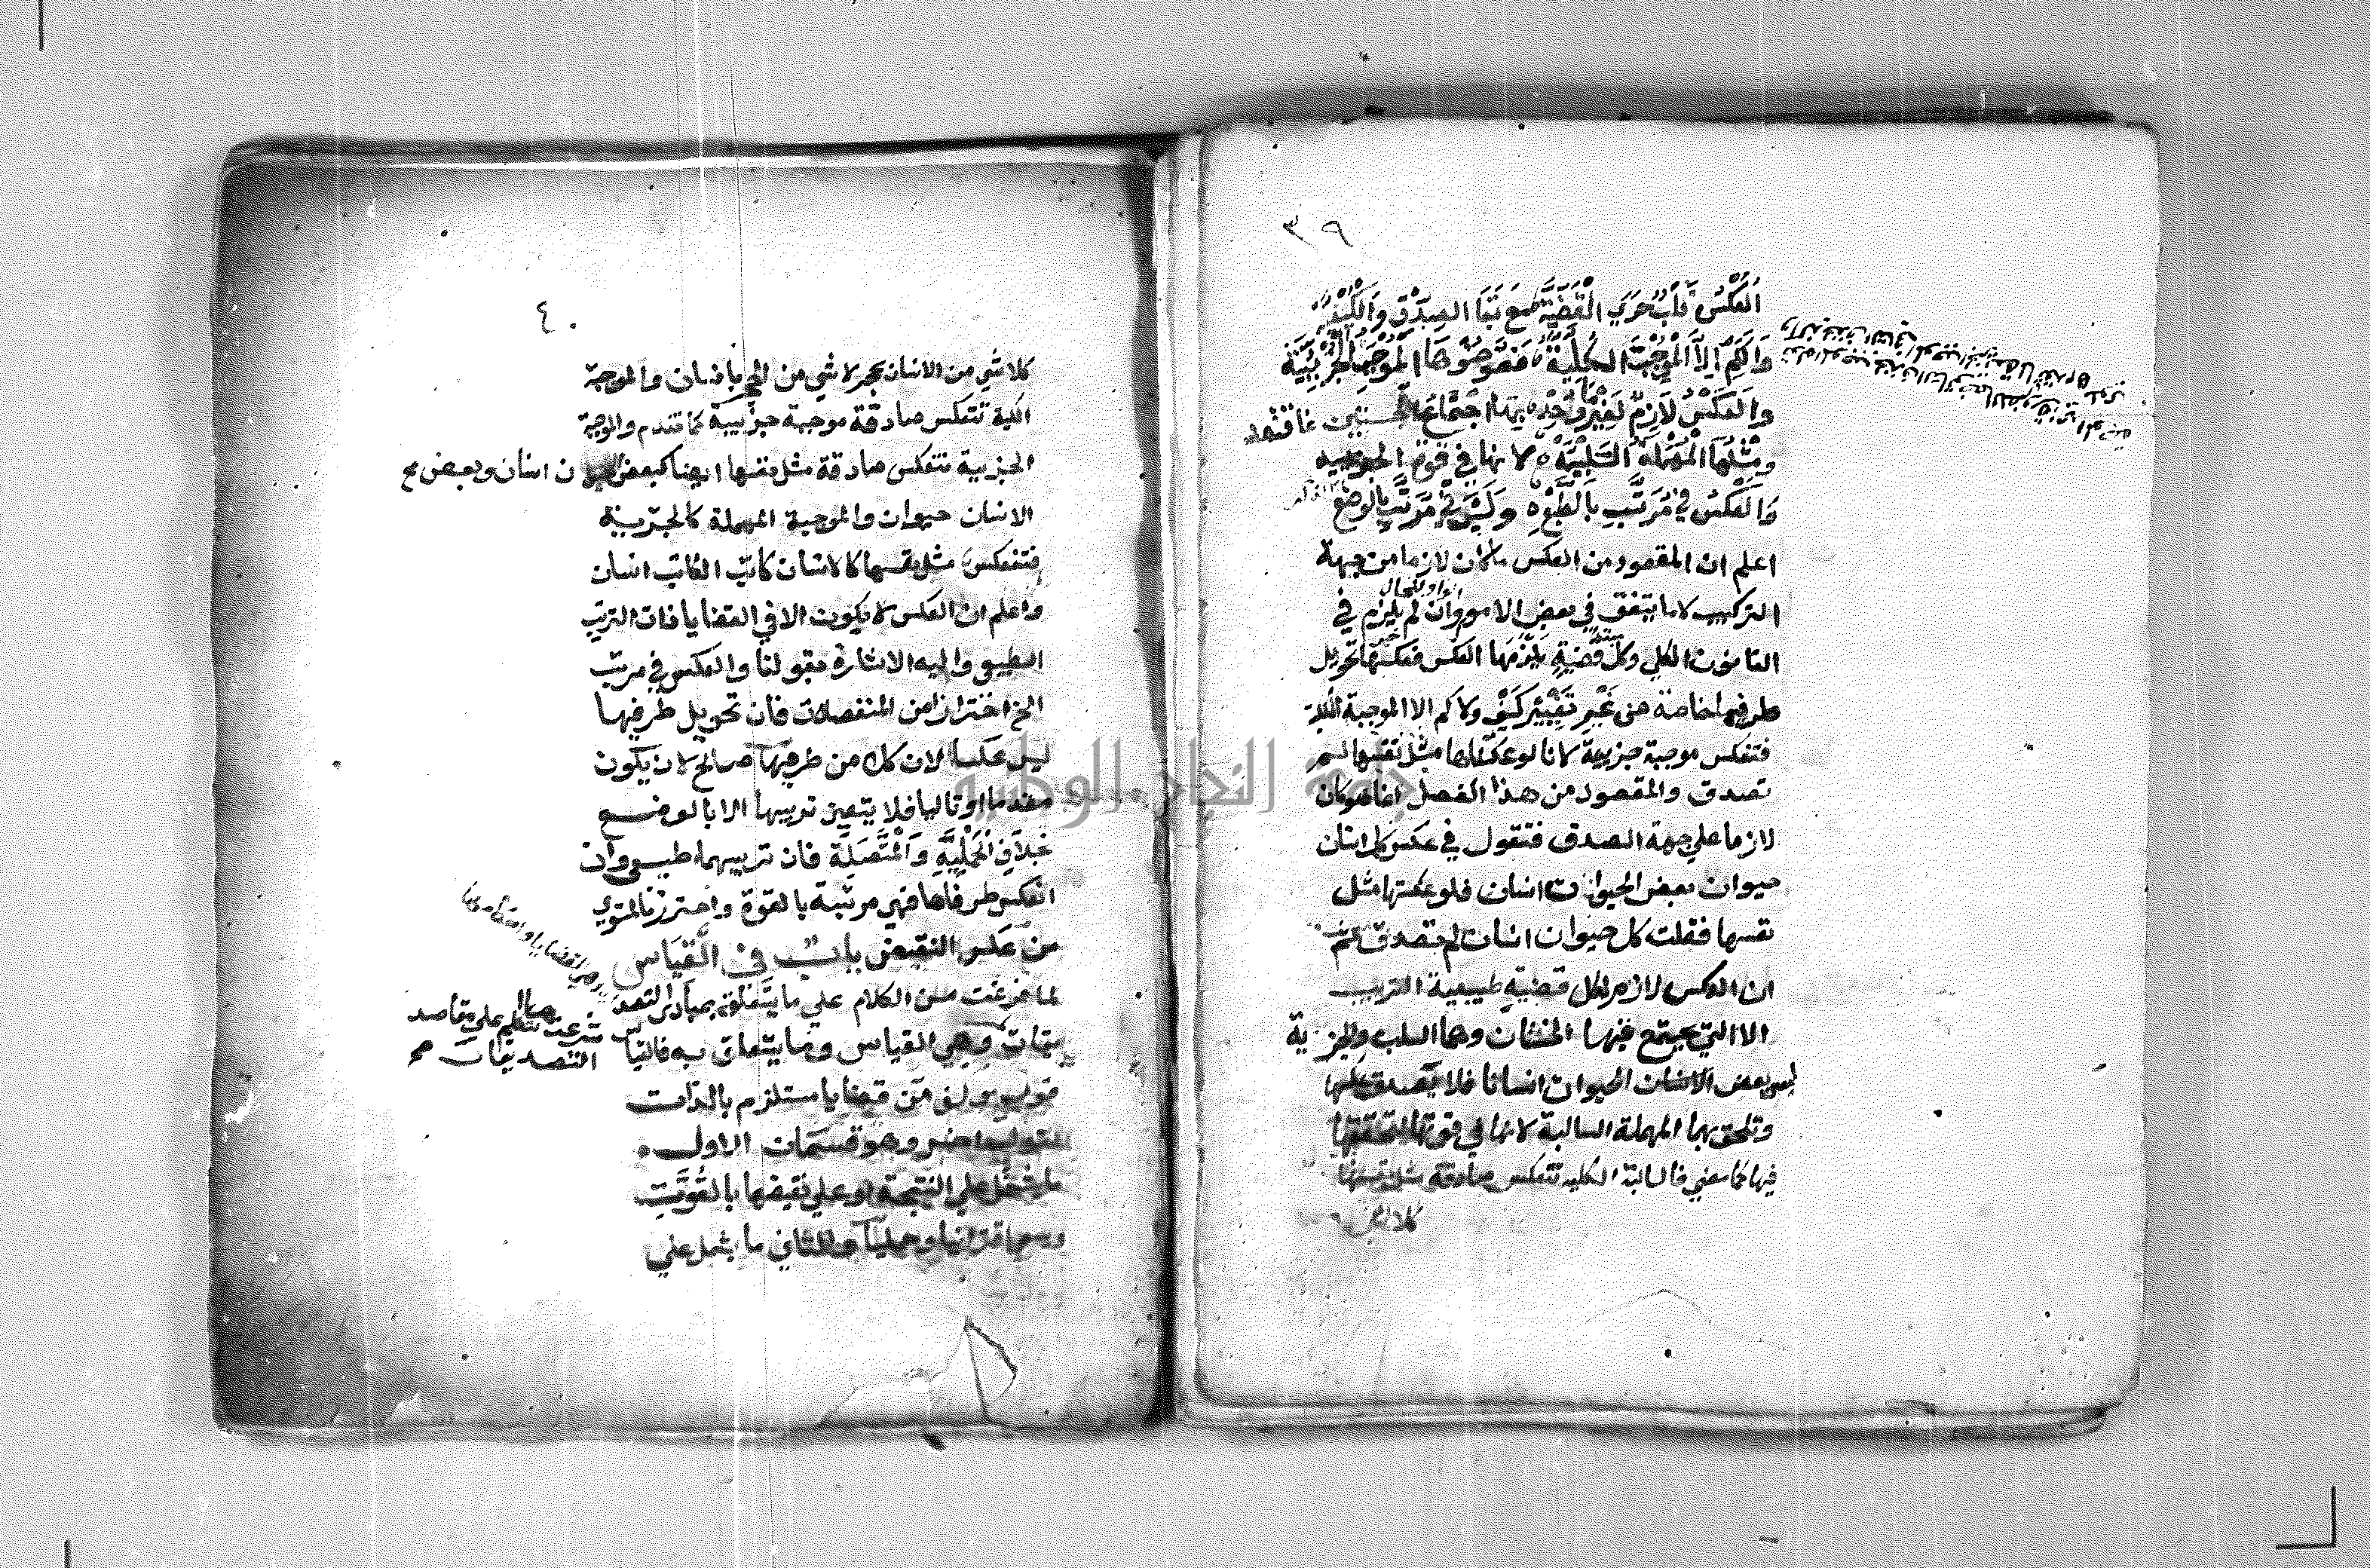 ٣٩
العَكْسُ قَلْبُ جُزْءَيِ القَضِيَّةْ مَعَ بَقَا الصِدْقِ وَالكَيْفِيَّةْ
وَالكَمِّ إلَّا المُوجَبَ الكُلِّيَّةْ فَعَوَّضُوهَا المُوجَبَ الجُزْئِيَّةَ
وَالعَكْسُ لَازِمٌ لِغَيْرِ مَا وُجِدْ بِهِ اجْتِمَاعُ الخِسَّتَيْنِ فاقتصد
وَمِثْلُهَا المُهْمَلَةُ السَلْبِيَّةْ لانها في قوة الجزءيه
وَالعَكْسُ فِي مُرَتَّبٍ بِالطَّبْعِ وَلَيْسَ فِي مُرَتَّبٍ بِالوَضْعِ
اعلم ان المقصود من العكس ما كان لازما من جهة
التركيب لا ما يتفق في بعض الامور وان لم يلزم في
الواو للحال
القانون الكلي وكل قضية يلزمها العكس فعكسها تحويل
طرفيها خاصة من غير تغيير كيف ولا كم الا الموجبة الكلية
فتنعكس موجبة جزيية لانا لو عكسناها مثل نفسها لم
تصدق والمقصود من هذا الفصل انما هو كان
لازما علي جهة الصدق فتقول في عكس كل انسان
حيوان بعض الحيوان انسان فلو عكستها مثل
نفسها فقلت كل حيوان انسان لم تصدق
ان العكس لازم لكل قضية طبيعية الترتيب
الا التي يجتمع فيها الخستان وهما السلب والجزية
ليس بعض الانسان الحيوان انسانا فلا يصدق عكسها
وتلحق بها المهملة السالبة لانها في قوتها لتحققها
فيها كما مضي فالسالبة الكليه تنعكس صادقة مثل نفسها
كلا شي
٤٠
كلا شي من الانسان بحجر لا شي من الحجر بانسان والموجبة
الكلية تنعكس صادقة موجبة جزيية كما تقدم والموجبة
الجزيية تنعكس صادقة مثل نفسها ايضا كبعض الحيوان انسان وبعض صح
الانسان حيوان والموجبة المهملة كالجزيية
فتنعكس مثل نفسها كالانسان كاتب الكاتب انسان
واعلم ان العكس لا يكون الا في القضايا ذات الترتيب
الطبيعي واليه الاشارة بقولنا والعكس في مرتب
الخ احترازا من المنفصلات فان تحويل طرفيها
ليس عكسا لان كل من طرفيها صالح لان يكون
مقدما او تاليا فلا يتعين ترتيبها الا بالوضع
بخلاف الحملية والمتصلة فان ترتيبهما طبيعي وان
انعكس طرفاها فهي مرتبة بالقوة واحترزنا بالمستوي
من عكس النقيض باب في القياس
لما فرغت من الكلام علي ما يتعلق بمبادي التصد
وهي القضايا واحكامها
يقات وهي القياس وما يتعلق به فالقياس
شرعت نتكلم علي مقاصد
التصديقات صح
قول مولف من قضايا مستلزم بالذات
لقول اخر وهو قسمان الاول
ما يشتمل علي النتيجة او علي نقيضها بالقوة
ويسمي اقترانيا وحمليا والثاني ما يشمل علي
جامعة النجاح الوطنية